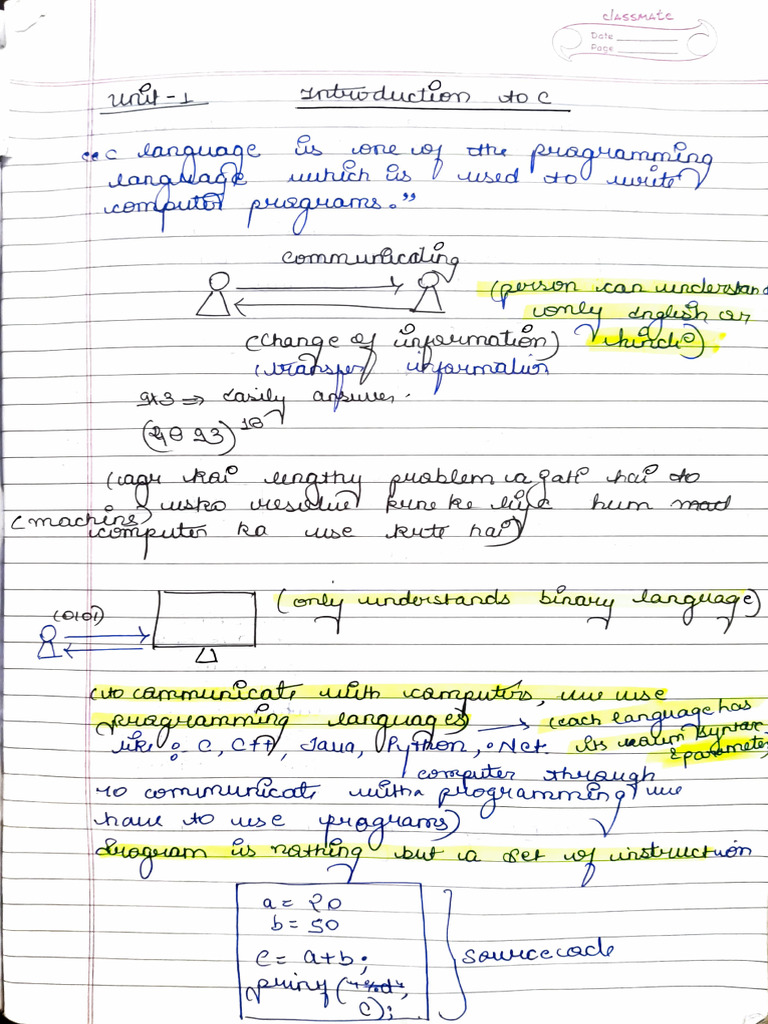 classmate
Date
Page
Unit-1 Introduction to C
"C language is one of the programming
language which is used to write
computer programs."
communicating
(person can understand
only English or
hindi)
(Change of information)
(transfer information
9x3 => easily answer.
(agr koi lengthy problem agati hai to
usko resolve krne ke liye hum mad
(machine)
computer ka use krte hai)
(0101)
(only understands binary language)
(to communicate with computers, we use
programming languages) → (each language has
like : C, C++, Java, Python, .Net. its own syntax
& parameter
computer through
To communicate with a programming we
have to use programs)
Program is nothing but a set of instruction
a = 20
b = 50
c = a+b;
printf("%d",
c);
source code